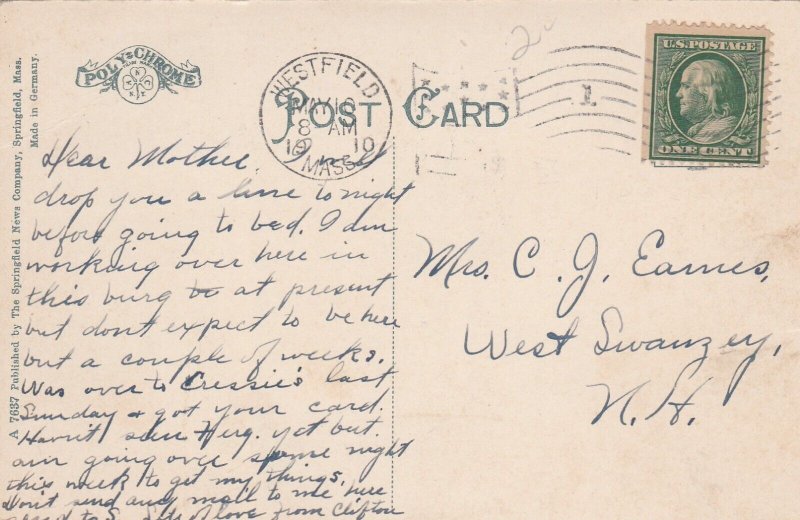 POLY-CHROME
POST CARD
WESTFIELD
MAY 16
8 AM
1910
MASS.
1
2
U.S. POSTAGE
ONE CENT
A 7637 Published by The Springfield News Company, Springfield, Mass.
Made in Germany.
Dear Mother. I will
drop you a line to night
before going to bed. I am
working over here in
this burg at present
but dont expect to be here
but a couple of weeks.
Was over to Cressie's last
Sunday & got your card.
Havn't seen Herg. yet but
am going over some night
this week to get my things.
Don't send any mail to me here
love from Clifton
Mrs. C. J. Eames,
West Swanzey,
N.H.